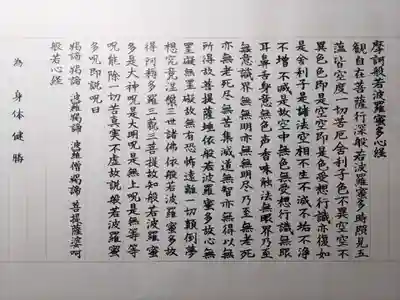 摩訶般若波羅蜜多心経
観自在菩薩行深般若波羅蜜多時照見五
蘊皆空度一切苦厄舎利子色不異空空不
異色色即是空空即是色受想行識亦復如
是舎利子是諸法空相不生不滅不垢不浄
不増不減是故空中無色無受想行識無眼
耳鼻舌身意無色声香味触法無眼界乃至
無意識界無無明亦無無明尽乃至無老死
亦無老死尽無苦集滅道無智亦無得以無
所得故菩提薩埵依般若波羅蜜多故心無
罣礙無罣礙故無有恐怖遠離一切顛倒夢
想究竟涅槃三世諸佛依般若波羅蜜多故
得阿耨多羅三藐三菩提故知般若波羅蜜
多是大神呪是大明呪是無上呪是無等等
呪能除一切苦真実不虚故説般若波羅蜜
多呪即説呪曰
羯諦 羯諦 波羅羯諦 波羅僧羯諦 菩提薩婆訶
般若心経
為 身体健勝